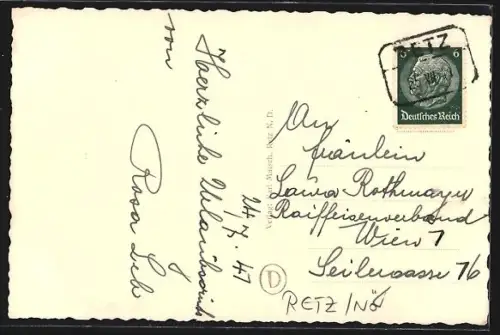 Herzliche Urlaubsgrüße
von
Rosa Leb
24/7. 41
Verlag: Karl Malsch, Retz N. D.
D
RETZ
6 6
Deutsches Reich
An
Fräulein
Laura Rothmayer
Raiffeisenverband
Wien 7
Seilergasse 76
RETZ/NÖ